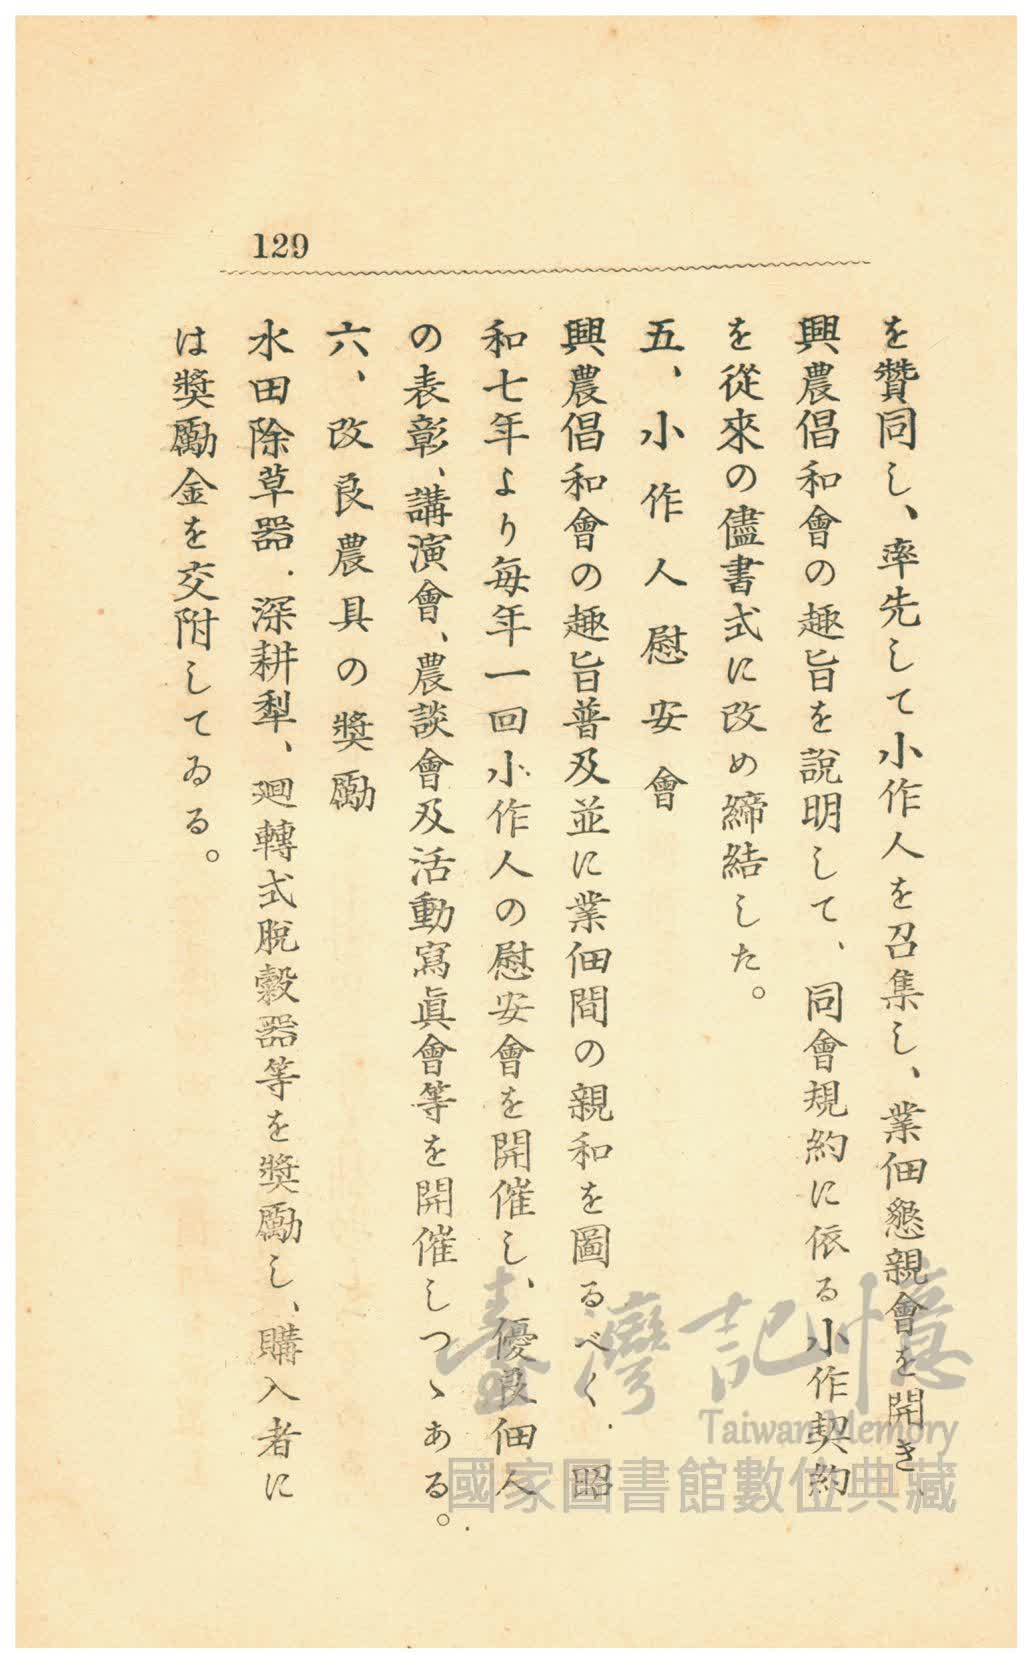 129
を贊同し、率先して小作人を召集し、業佃懇親會を開き、
興農倡和會の趣旨を說明して、同會規約に依る小作契約
を從來の儘書式に改め締結した。
五、小作人慰安會
興農倡和會の趣旨普及並に業佃間の親和を圖るべく、昭
和七年より每年一回小作人の慰安會を開催し、優良佃人
の表彰、講演會、農談會及活動寫眞會等を開催しつゝある。
六、改良農具の獎勵
水田除草器、深耕犁、廻轉式脫穀器等を獎勵し、購入者に
は獎勵金を交附してゐる。
臺灣記憶
Taiwan Memory
國家圖書館數位典藏